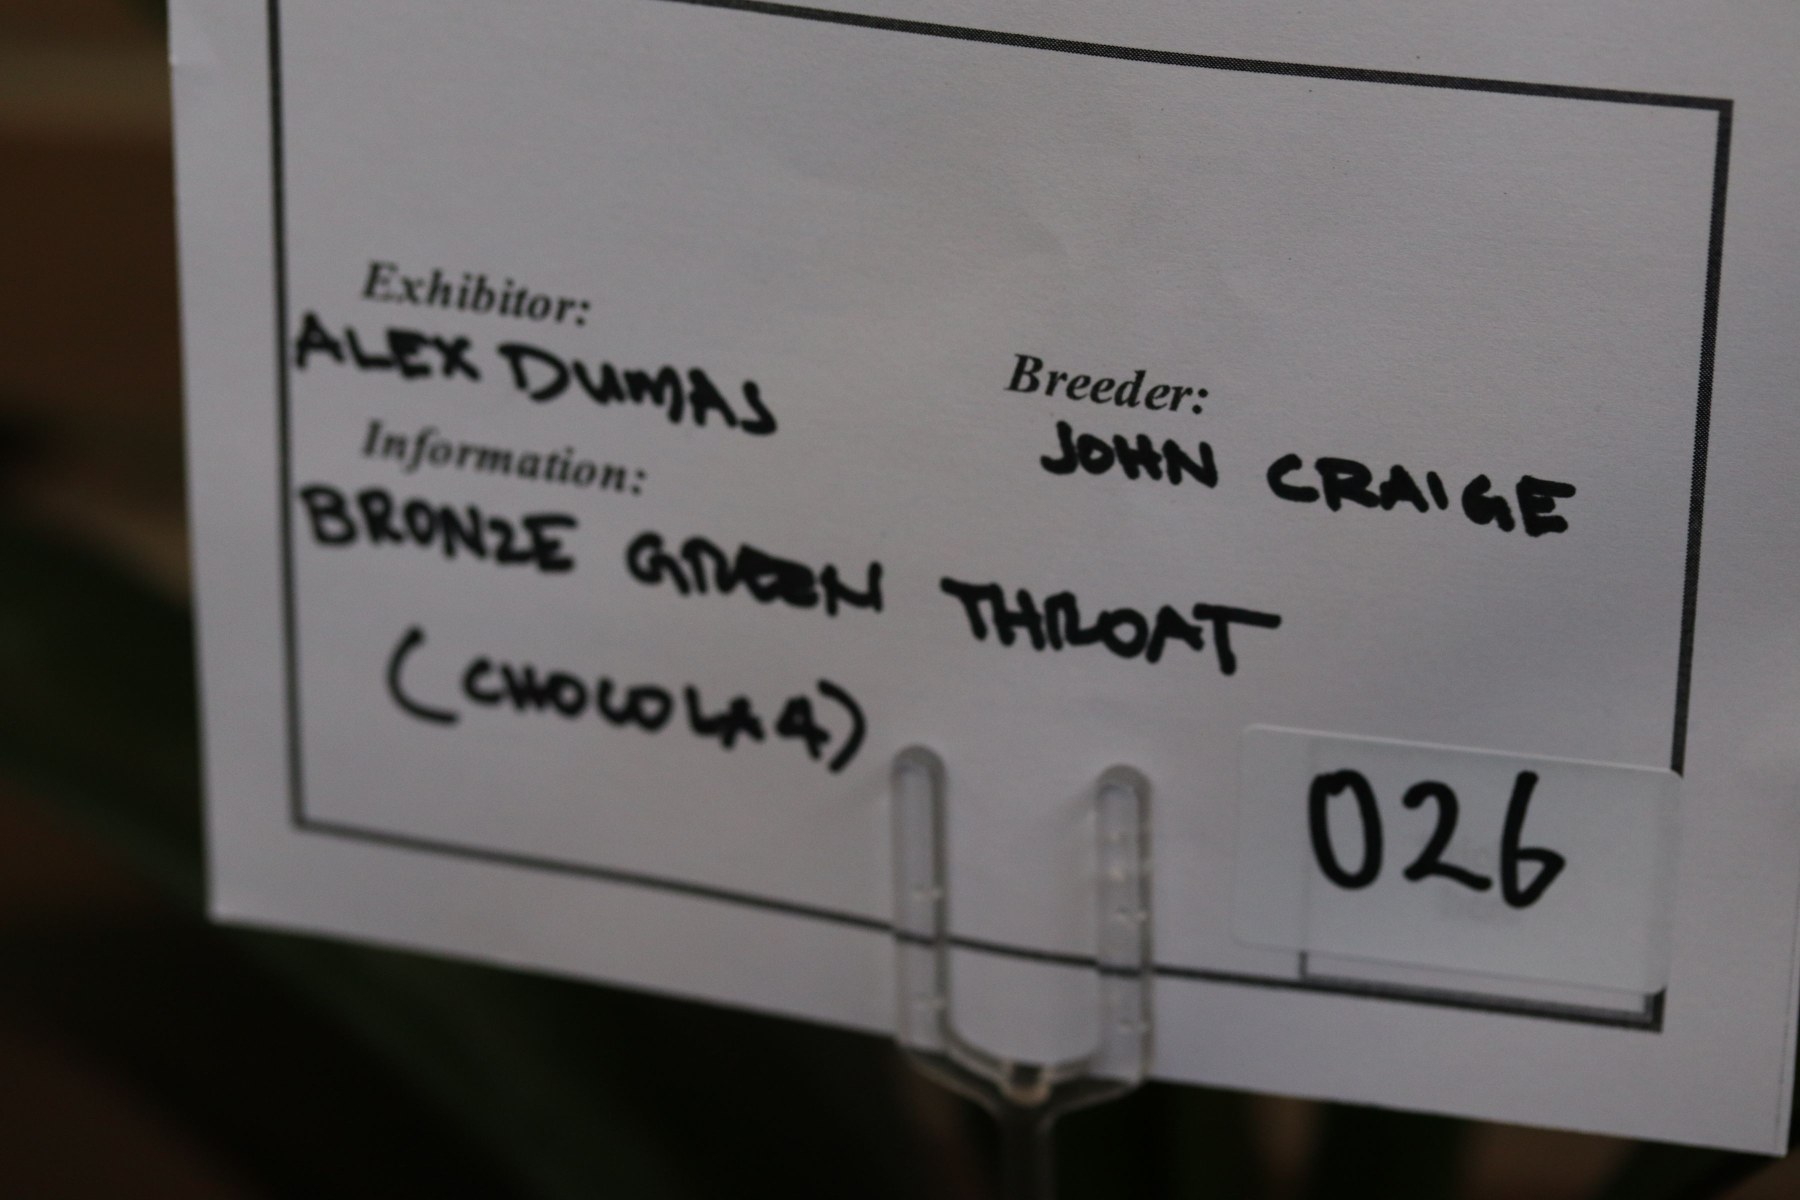 Exhibitor:
ALEX DUMAS
Breeder:
JOHN CRAIGE
Information:
BRONZE GREEN THROAT
(CHOCOLA4)
026